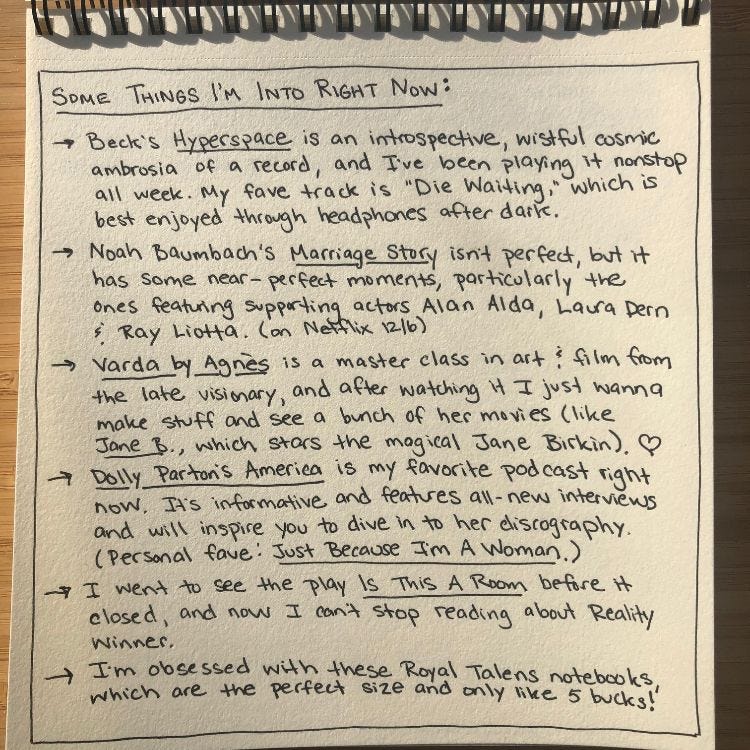 SOME THINGS I'M INTO RIGHT NOW:
→ Beck's Hyperspace is an introspective, wistful cosmic
ambrosia of a record, and I've been playing it nonstop
all week. My fave track is "Die Waiting," which is
best enjoyed through headphones after dark.
→ Noah Baumbach's Marriage Story isn't perfect, but it
has some near-perfect moments, particularly the
ones featuring supporting actors Alan Alda, Laura Dern
& Ray Liotta. (on Netflix 12/6)
→ Varda by Agnès is a master class in art & film from
the late visionary, and after watching it I just wanna
make stuff and see a bunch of her movies (like
Jane B., which stars the magical Jane Birkin). ♡
→ Dolly Parton's America is my favorite podcast right
now. It's informative and features all-new interviews
and will inspire you to dive in to her discography.
(Personal fave: Just Because I'm A Woman.)
→ I went to see the play Is This A Room before it
closed, and now I can't stop reading about Reality
Winner.
→ I'm obsessed with these Royal Talens notebooks,
which are the perfect size and only like 5 bucks!